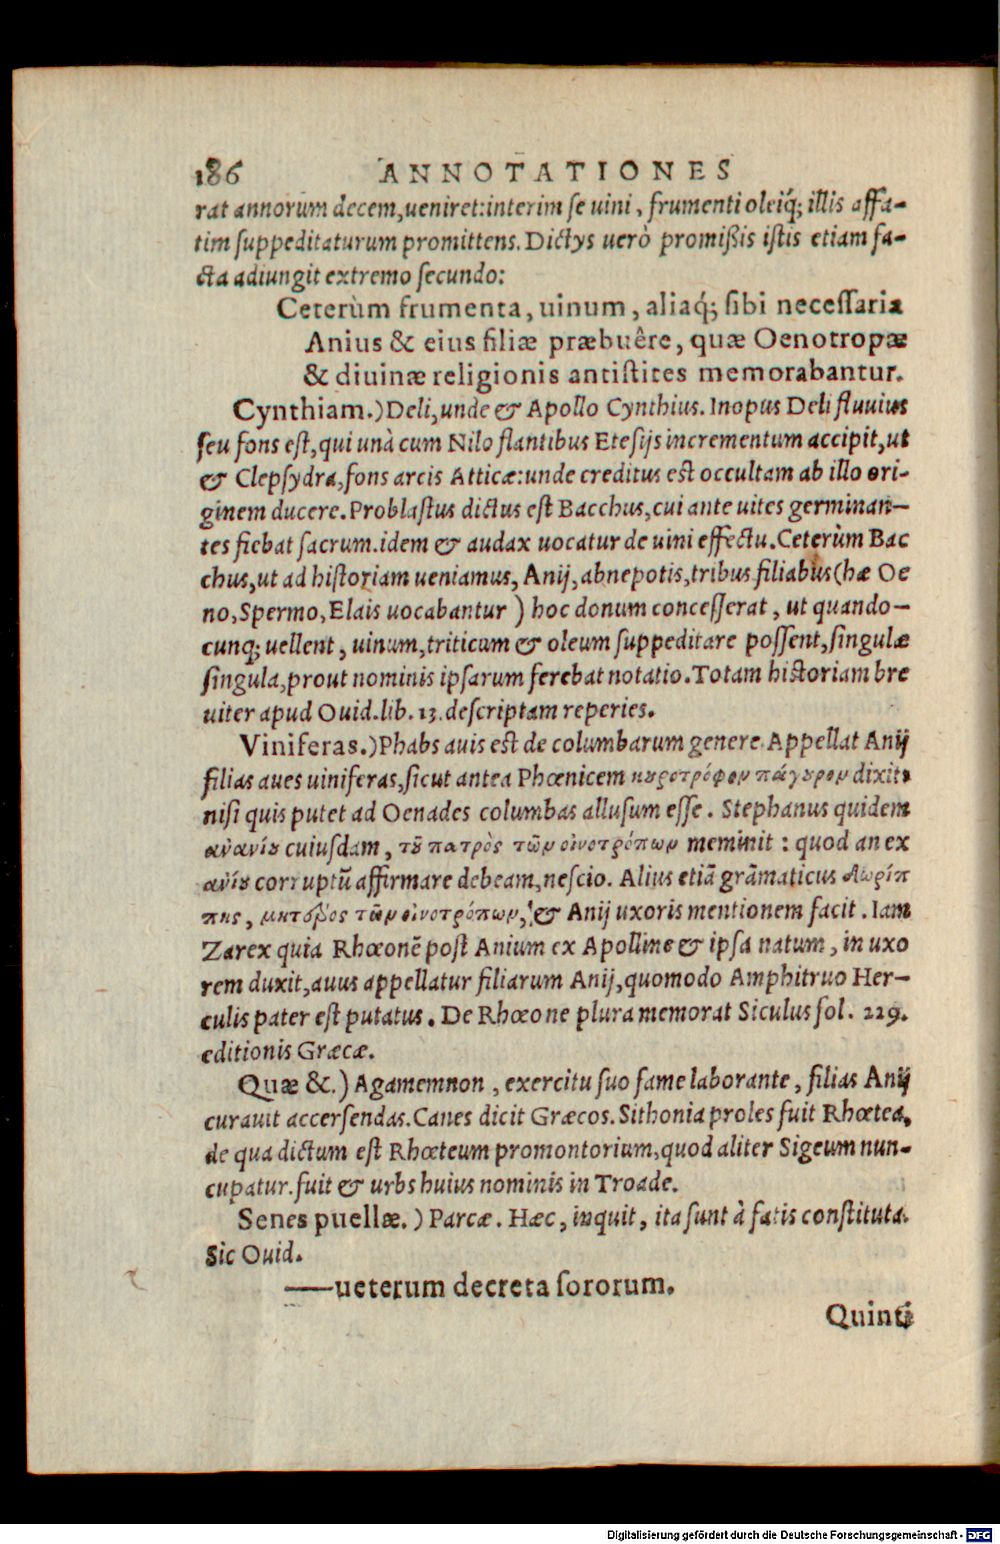 186 ANNOTATIONES
rat annorum decem,ueniret:interim se uini, frumenti oleiq́; illis affa-
tim suppeditaturum promittens. Dictys uerò promißis istis etiam fa-
cta adiungit extremo secundo:
Ceterùm frumenta, uinum, aliaq́; sibi necessaria
Anius & eius filiæ præbuêre, quæ Oenotropæ
& diuinæ religionis antistites memorabantur.
Cynthiam.) Deli,unde & Apollo Cynthius. Inopus Deli fluuius
seu fons est, qui unà cum Nilo flantibus Etesijs incrementum accipit,ut
& Clepsydra,fons arcis Atticæ:unde creditus est occultam ab illo ori-
ginem ducere. Problastus dictus est Bacchus,cui ante uites germinan-
tes fiebat sacrum.idem & audax uocatur de uini effectu. Ceterùm Bac
chus,ut ad historiam ueniamus, Anij, abnepotis,tribus filiabus (hæ Oe
no, Spermo, Elais uocabantur ) hoc donum concesserat, ut quando-
cunq; uellent, uinum,triticum & oleum suppeditare possent,singulæ
singula,prout nominis ipsarum ferebat notatio. Totam historiam bre
uiter apud Ouid.lib. 13. descriptam reperies.
Viniferas.) Phabs auis est de columbarum genere. Appellat Anij
filias aues uiniferas, sicut antea Phœnicem κυροτρόφον πάγυρον dixit,
nisi quis putet ad Oenades columbas allusum esse. Stephanus quidem
ἀνανίου cuiusdam, τοῦ πατρὸς τῶν οἰνοτρόπων meminit : quod an ex
ἀνίου corruptũ affirmare debeam,nescio. Alius etiã grãmaticus Δωρίπ
πης, μητρὸς τῶν οἰνοτρόπων, & Anij uxoris mentionem facit. Iam
Zarex quia Rhœonẽ post Anium ex Apolline & ipsa natum, in uxo
rem duxit,auus appellatur filiarum Anij,quomodo Amphitruo Her-
culis pater est putatus. De Rhœone plura memorat Siculus fol. 229.
editionis Græcæ.
Quæ &.) Agamemnon, exercitu suo fame laborante, filias Anij
curauit accersendas. Canes dicit Græcos. Sithonia proles fuit Rhœtea,
de qua dictum est Rhœteum promontorium,quod aliter Sigeum nun-
cupatur. fuit & urbs huius nominis in Troade.
Senes puellæ.) Parcæ. Hæc, inquit, ita sunt à fatis constituta.
Sic Ouid.
—ueterum decreta sororum.
Digitalisierung gefördert durch die Deutsche Forschungsgemeinschaft - DFG